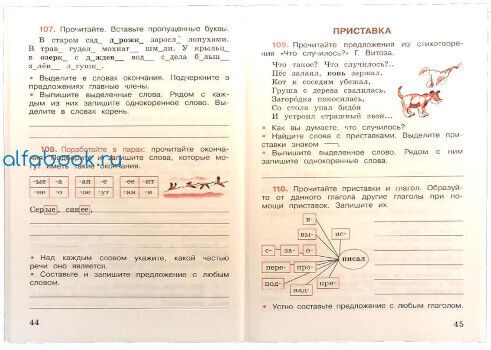 107. Прочитайте. Вставьте пропущенные буквы.
В старом сад_ д_рожк_ заросл_ лопухами.
В трав_ гудел_ мохнат__ шм_ли. У крыльц_
в озерк_ с д_ждев__ вод__ с_дела б_льш__
з_лён__ л_гушк_.
• Выделите в словах окончания. Подчеркните в
предложениях главные члены.
• Выпишите выделенные слова. Рядом с каж-
дым из них запишите однокоренное слово. Вы-
делите в словах корень.
108. Поработайте в парах: прочитайте оконча-
ния. Подберите и запишите слова, которые мо-
гут иметь такие окончания.
-ые -а -ая -е -ее -ит
-ие -о -ое -ут -яя -и
Серые, синее,
• Над каждым словом укажите, какой частью
речи оно является.
• Составьте и запишите предложение с любым
словом.
44
alfabook.ru
ПРИСТАВКА
109. Прочитайте предложения из стихотворе-
ния «Что случилось?» Г. Витеза.
Что такое? Что случилось?..
Пёс залаял, конь заржал.
Кот к соседям убежал,
Груша с дерева свалилась,
Загородка покосилась,
Со стола упал бидон
И устроил страшный звон...
• Как вы думаете, что случилось?
• Найдите слова с приставками. Выделите при-
ставки знаком
• Выпишите выделенное слово. Рядом с ним
запишите однокоренные слова.
110. Прочитайте приставки и глагол. Образуй-
те от данного глагола другие глаголы при по-
мощи приставок. Запишите их.
в-
вы- ис-
с- за- о-
пере- про- писал
под- над- при-
• Устно составьте предложение с любым глаголом.
45